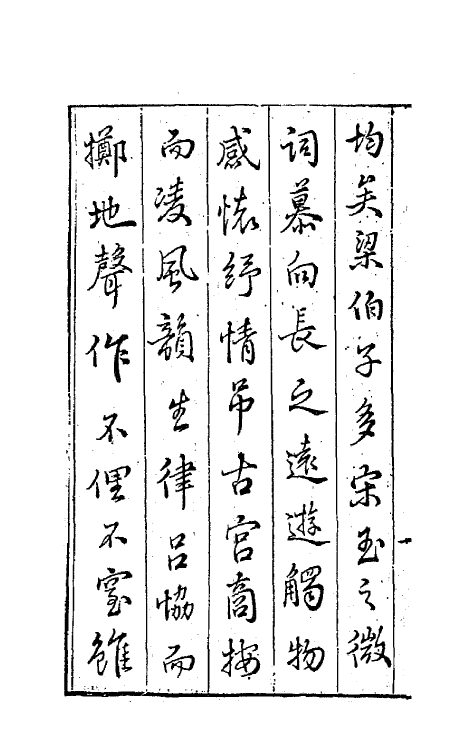 均矣梁伯子多宋玉之微
词慕向長之遠遊觸物
感懷紓情吊古宮商按
而凌風韻生律呂恊而
擲地聲作不俚不窒雖